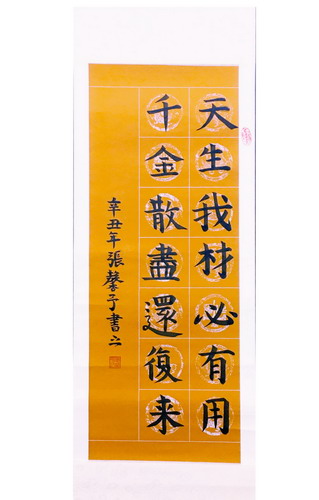 天生我材必有用
千金散盡還復来
辛丑年張馨子書之